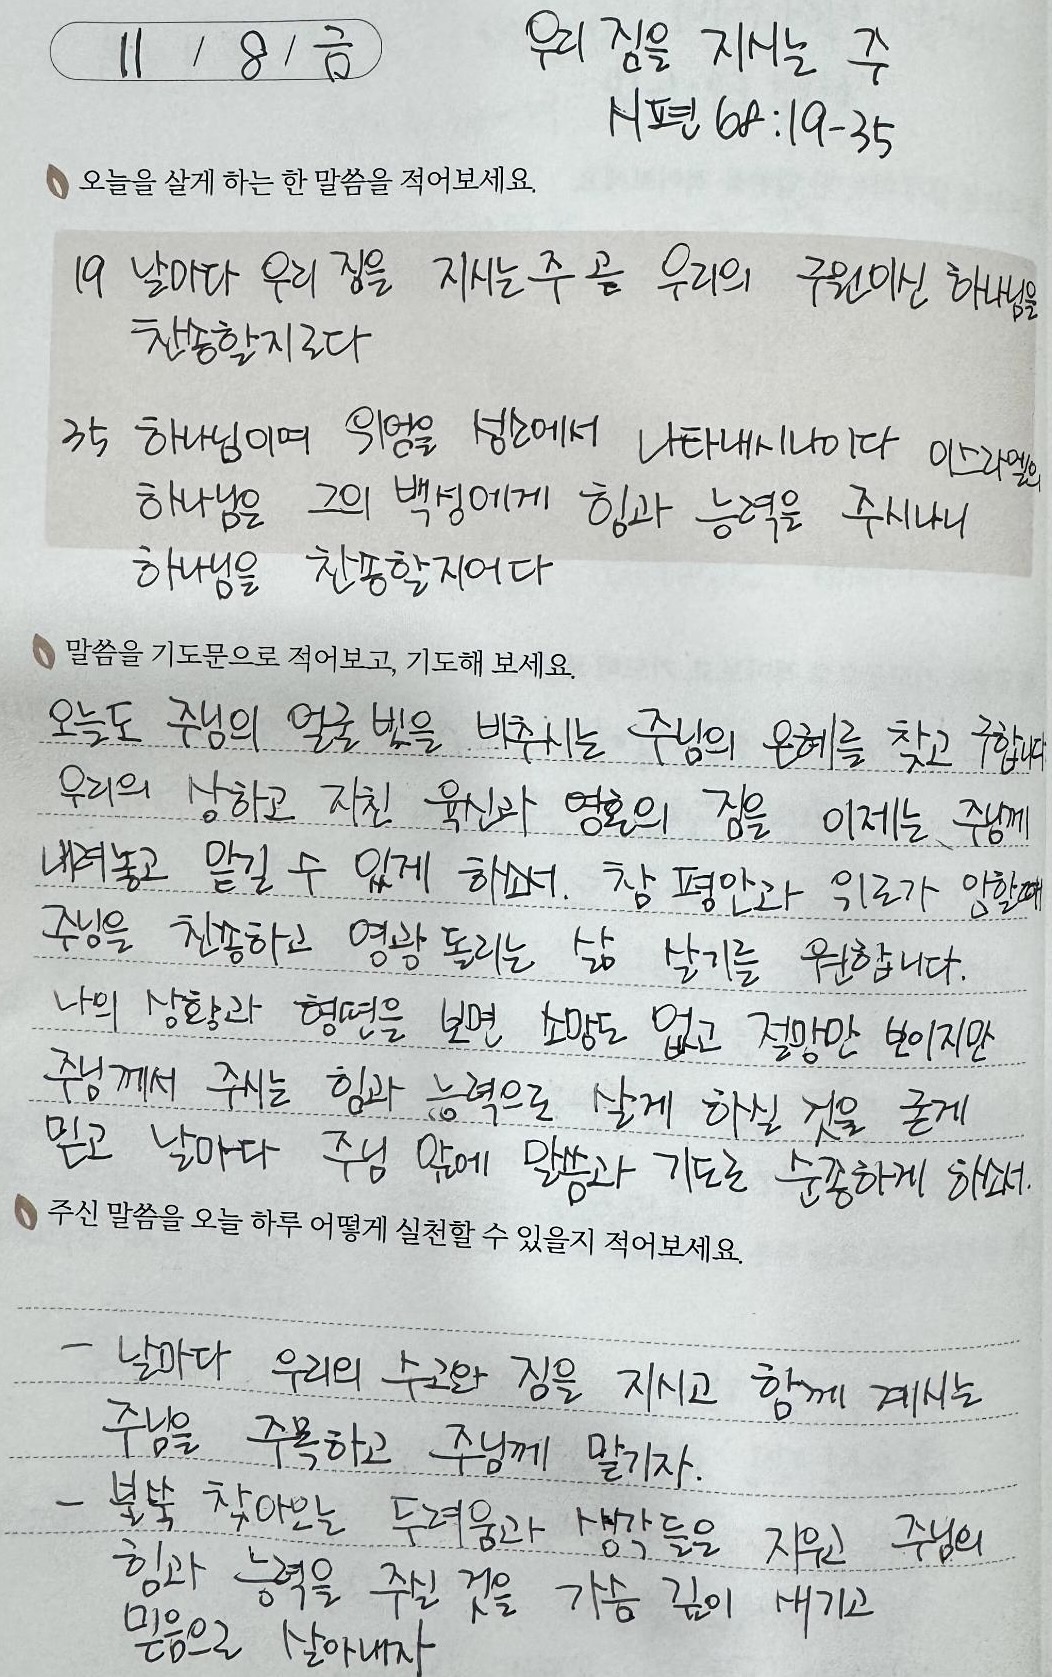 11 / 8 / 금
우리 짐을 지시는 주
시편 68:19-35
오늘을 살게 하는 한 말씀을 적어보세요.
19 날마다 우리 짐을 지시는 주 곧 우리의 구원이신 하나님을
찬송할지로다
35 하나님이여 위엄을 성소에서 나타내시나이다 이스라엘의
하나님은 그의 백성에게 힘과 능력을 주시나니
하나님을 찬송할지어다
말씀을 기도문으로 적어보고, 기도해 보세요.
오늘도 주님의 얼굴 빛을 비추시는 주님의 은혜를 찾고 구합니다
우리의 상하고 지친 육신과 영혼의 짐을 이제는 주님께
내려놓고 맡길 수 있게 하소서. 참 평안과 위로가 임할때
주님을 찬송하고 영광 돌리는 삶 살기를 원합니다.
나의 상황과 형편을 보면 소망도 없고 절망만 보이지만
주님께서 주시는 힘과 능력으로 살게 하실 것을 굳게
믿고 날마다 주님 앞에 말씀과 기도로 순종하게 하소서.
주신 말씀을 오늘 하루 어떻게 실천할 수 있을지 적어보세요.
- 날마다 우리의 수고와 짐을 지시고 함께 계시는
주님을 주목하고 주님께 맡기자.
- 불쑥 찾아오는 두려움과 생각들은 지우고 주님의
힘과 능력을 주실 것을 가슴 깊이 새기고
믿음으로 살아내자